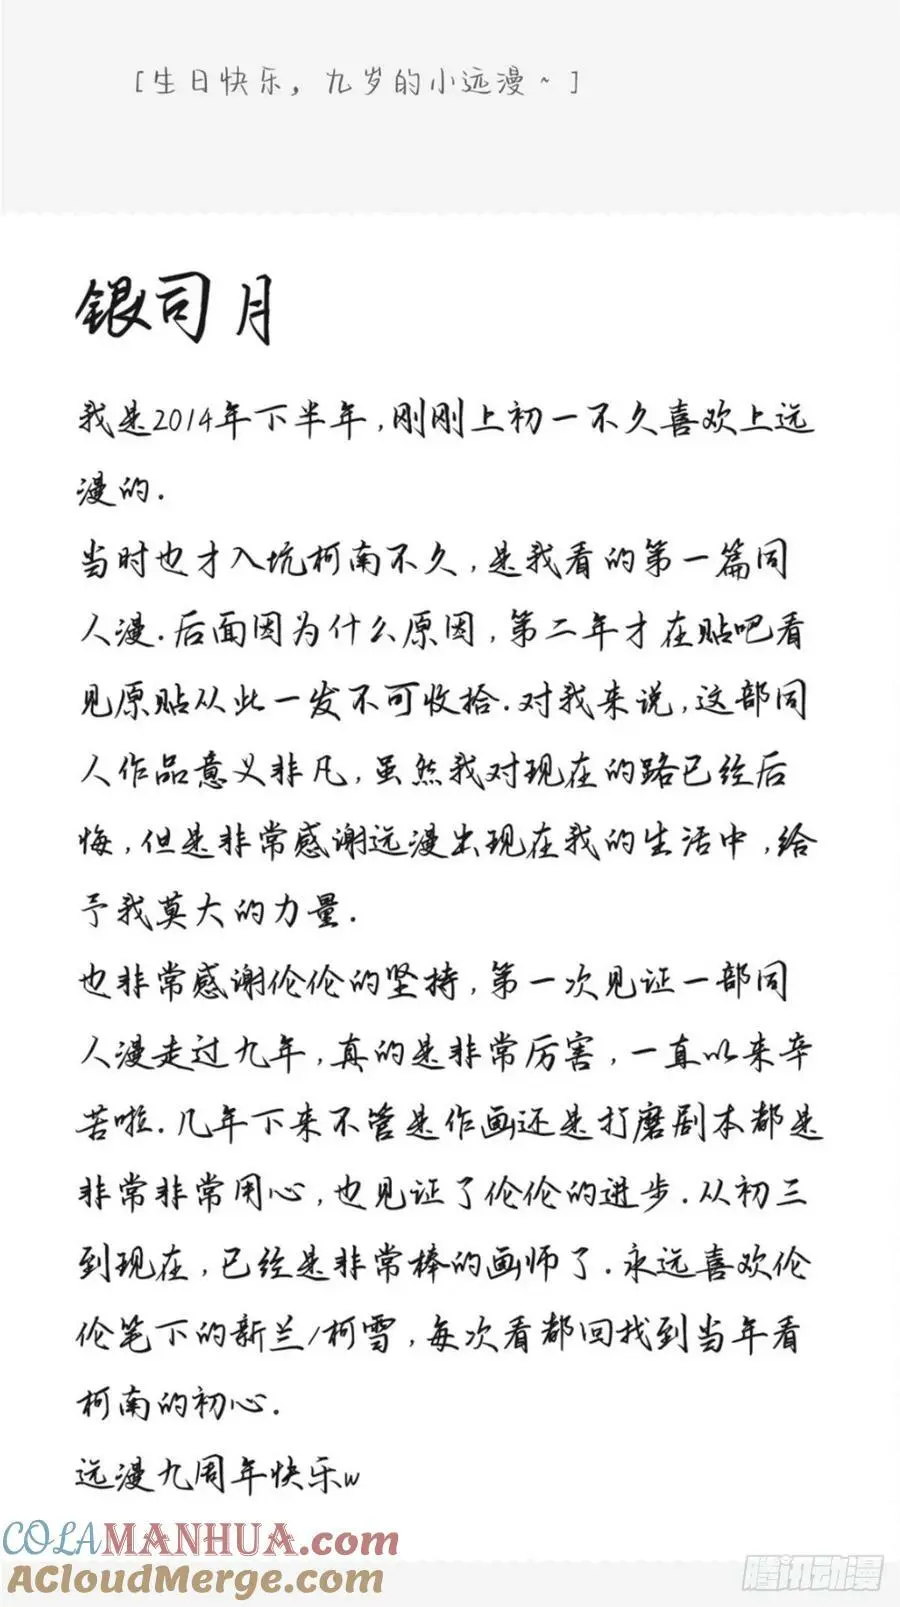 [生日快乐，九岁的小远漫~]
银司月
我是2014年下半年，刚刚上初一不久喜欢上远
漫的.
当时也才入坑柯南不久，是我看的第一篇同
人漫.后面因为什么原因，第二年才在贴吧看
见原贴从此一发不可收拾.对我来说，这部同
人作品意义非凡，虽然我对现在的路已经后
悔，但是非常感谢远漫出现在我的生活中，给
予我莫大的力量.
也非常感谢伦伦的坚持，第一次见证一部同
人漫走过九年，真的是非常厉害，一直以来辛
苦啦.几年下来不管是作画还是打磨剧本都是
非常非常用心，也见证了伦伦的进步.从初三
到现在，已经是非常棒的画师了.永远喜欢伦
伦笔下的新兰/柯雪，每次看都回找到当年看
柯南的初心.
远漫九周年快乐w
COLAMANHUA.com
ACloudMerge.com
腾讯动漫